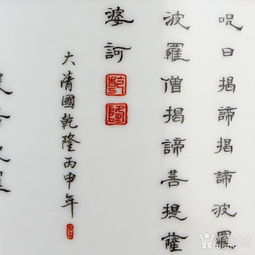 呪曰揭諦揭諦波羅
波羅僧揭諦菩提薩
婆訶
乾
隆
大清國乾隆丙申年